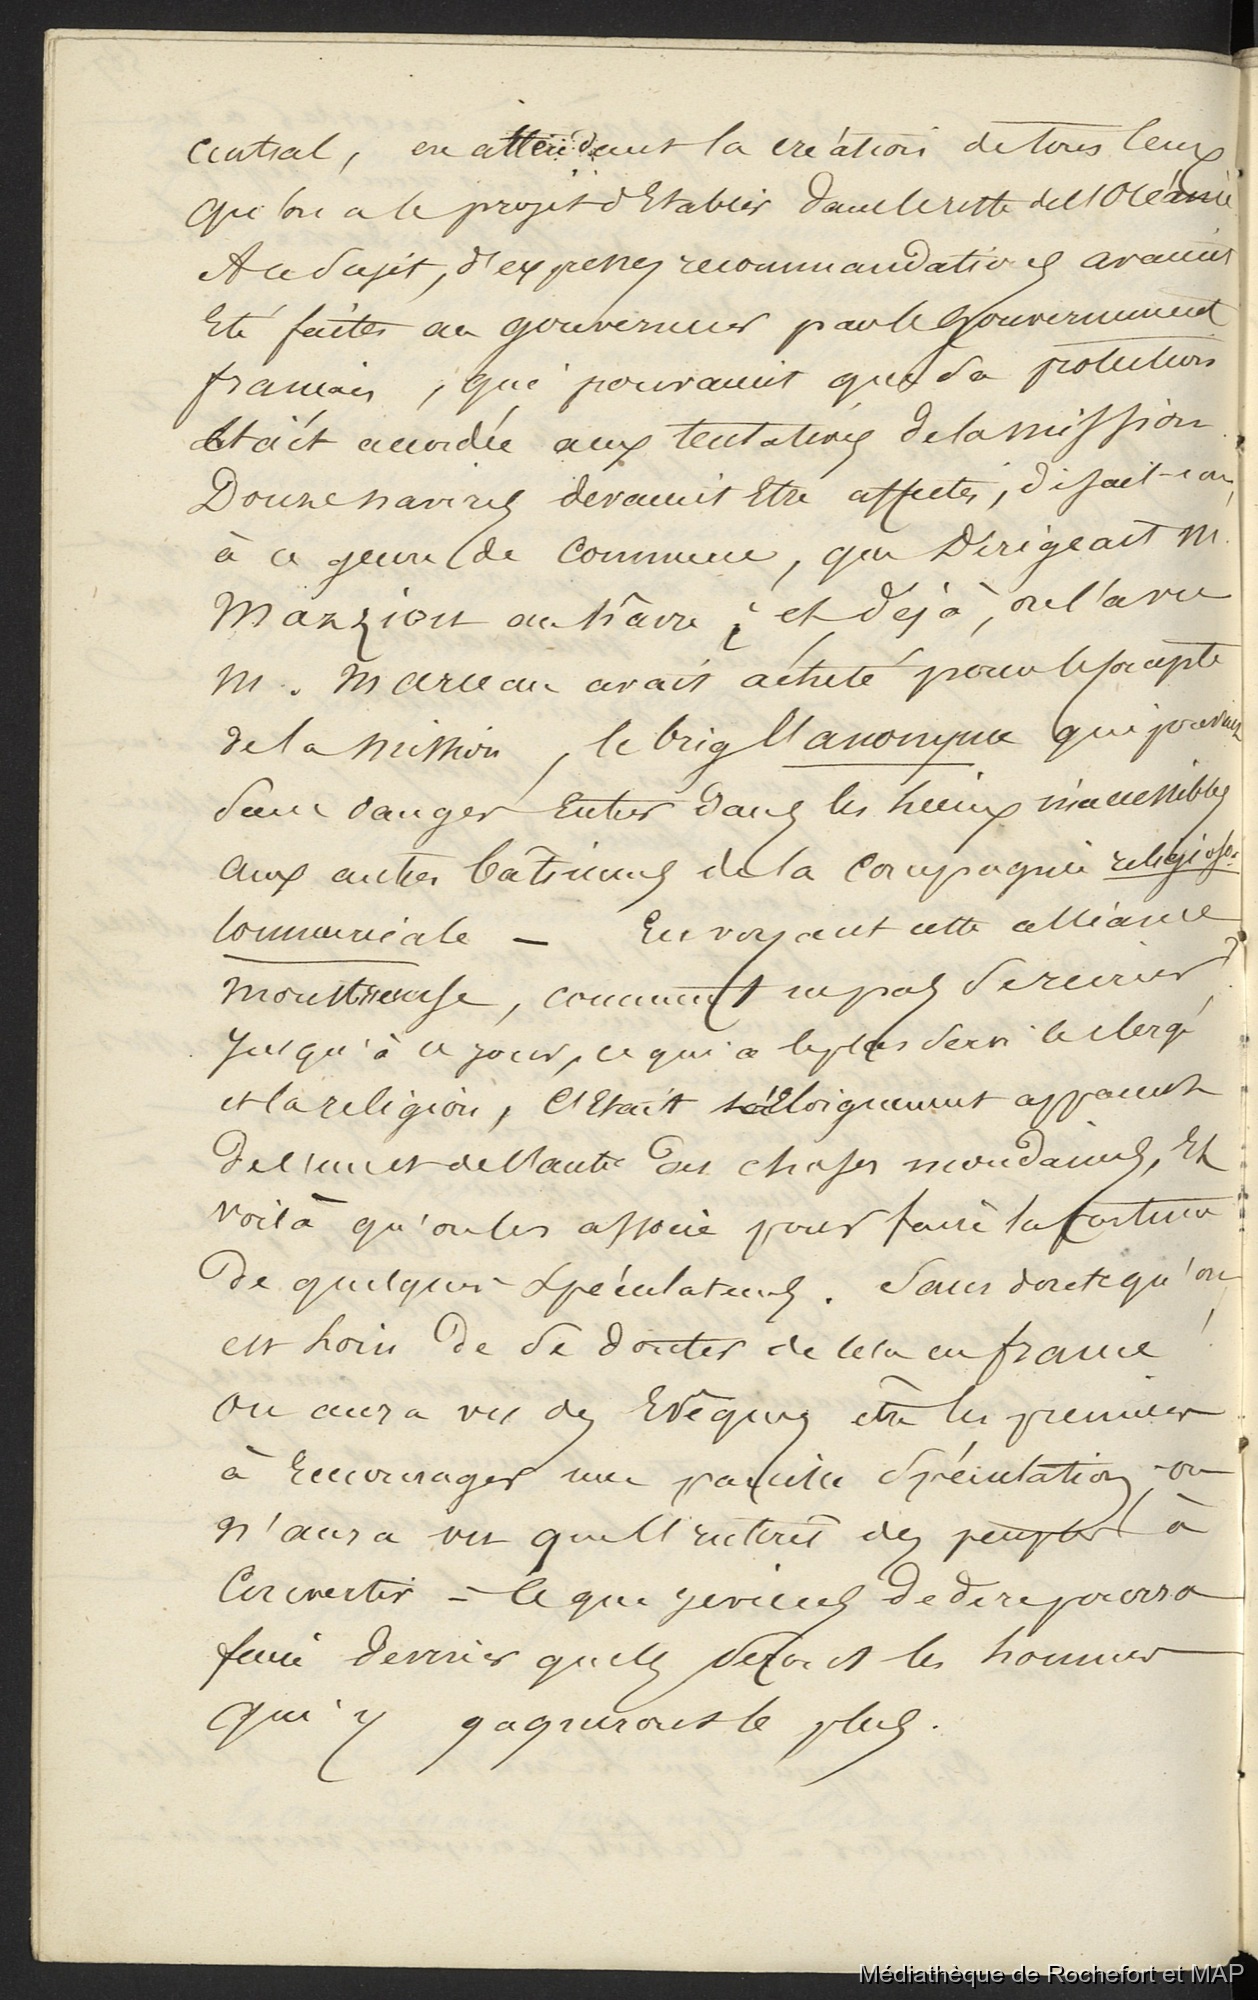 central, en attendant la création de tous ceux
qu'on a le projet d'Etablir dans le reste de l'Océanie
A ce sujet, d'expresses recommandations avaient
Eté faites au gouverneur par le Gouvernement
francais, qui pouvaient que sa protection
Etait accordée aux tentatives de la mission
Douze navires devaient Etre affectés, disait-on,
à ce genre de commerce, que Dirigeait M.
Marziou au hâvre ; et déjà, on l'a vu
M. Marceau avait acheté pour le compte
de la mission, le brig l'anonyme qui pouvait
sans danger Entrer dans les lieux inaccessibles
aux autres bâtiments de la Compagnie religioso-
commerciale — En voyant cette alliance
monstrueuse, comment ne pas se récrier ?
Jusqu'à ce jour, ce qui a le plus servi le clergé
et la religion, c'Etait l'Eloignement apparent
de l'un et de l'autre des choses mondaines, Et
voilà qu'on les associe pour faire la fortune
De quelques spéculateurs. Sans doute qu'on
est loin De se douter de cela en france !
on aura vu des Evêques être les premiers
à Encourager une pareille spéculation, on
n'aura vu que l'intérêt des peuples à
Convertir — Ce que je viens De dire pourra
faire deviner quels seront les hommes
qui y gagneront le plus.
Médiathèque de Rochefort et MAP